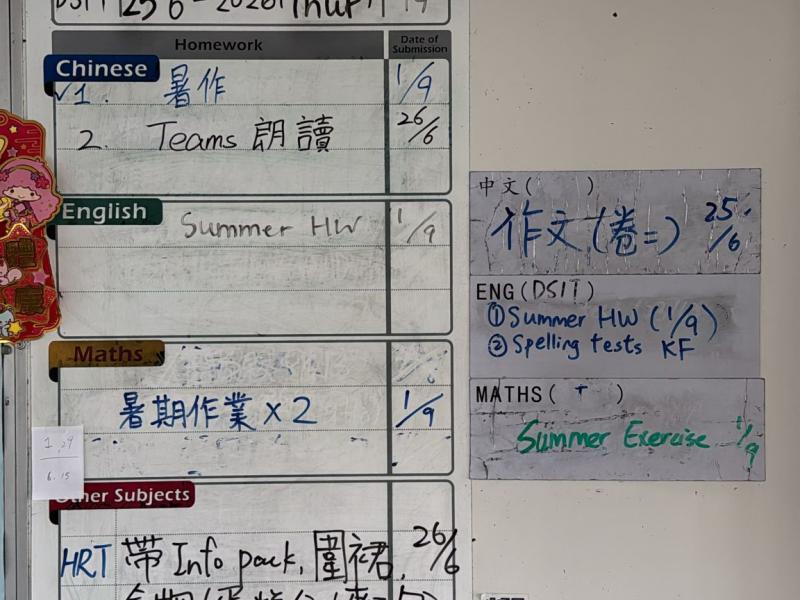 25 6 - 2026 (Thur)
Homework
Date of Submission
Chinese
✓1. 暑作 1/9
2. Teams 朗讀 26/6
English
Summer HW 1/9
Maths
暑期作業 x 2 1/9
1, 29
6.15
Other Subjects
HRT 帶 Info pack, 圍裙, 26/6
中文( )
作文(卷二) 25/6
ENG (DSIT)
① Summer HW (1/9)
② Spelling tests KF
MATHS( + )
Summer Exercise 1/9